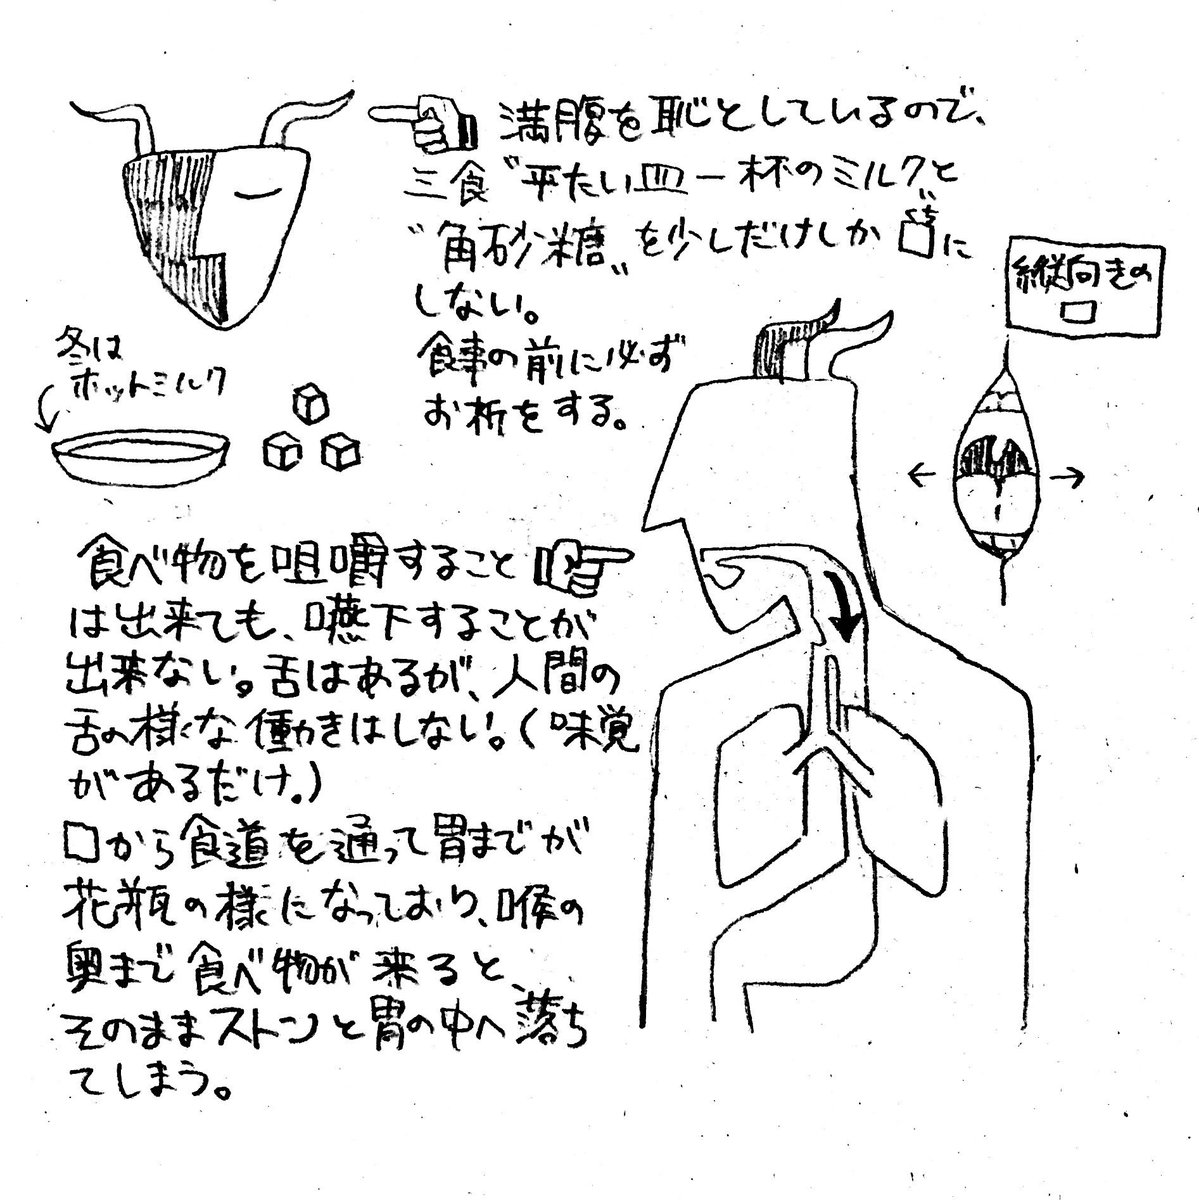 満腹を恥としているので、
三食〝平たい皿一杯のミルクと〟
〝角砂糖〟を少しだけしか口に
くち
しない。
食事の前に必ず
お祈をする。
冬は
ホットミルク
縦向きの
口
食べ物を咀嚼すること
は出来ても、嚥下することが
出来ない。舌はあるが、人間の
舌の様な働きはしない。(味覚
があるだけ。)
口から食道を通って胃までが
花瓶の様になっており、喉の
奥まで食べ物が来ると、
そのままストンと胃の中へ落ち
てしまう。